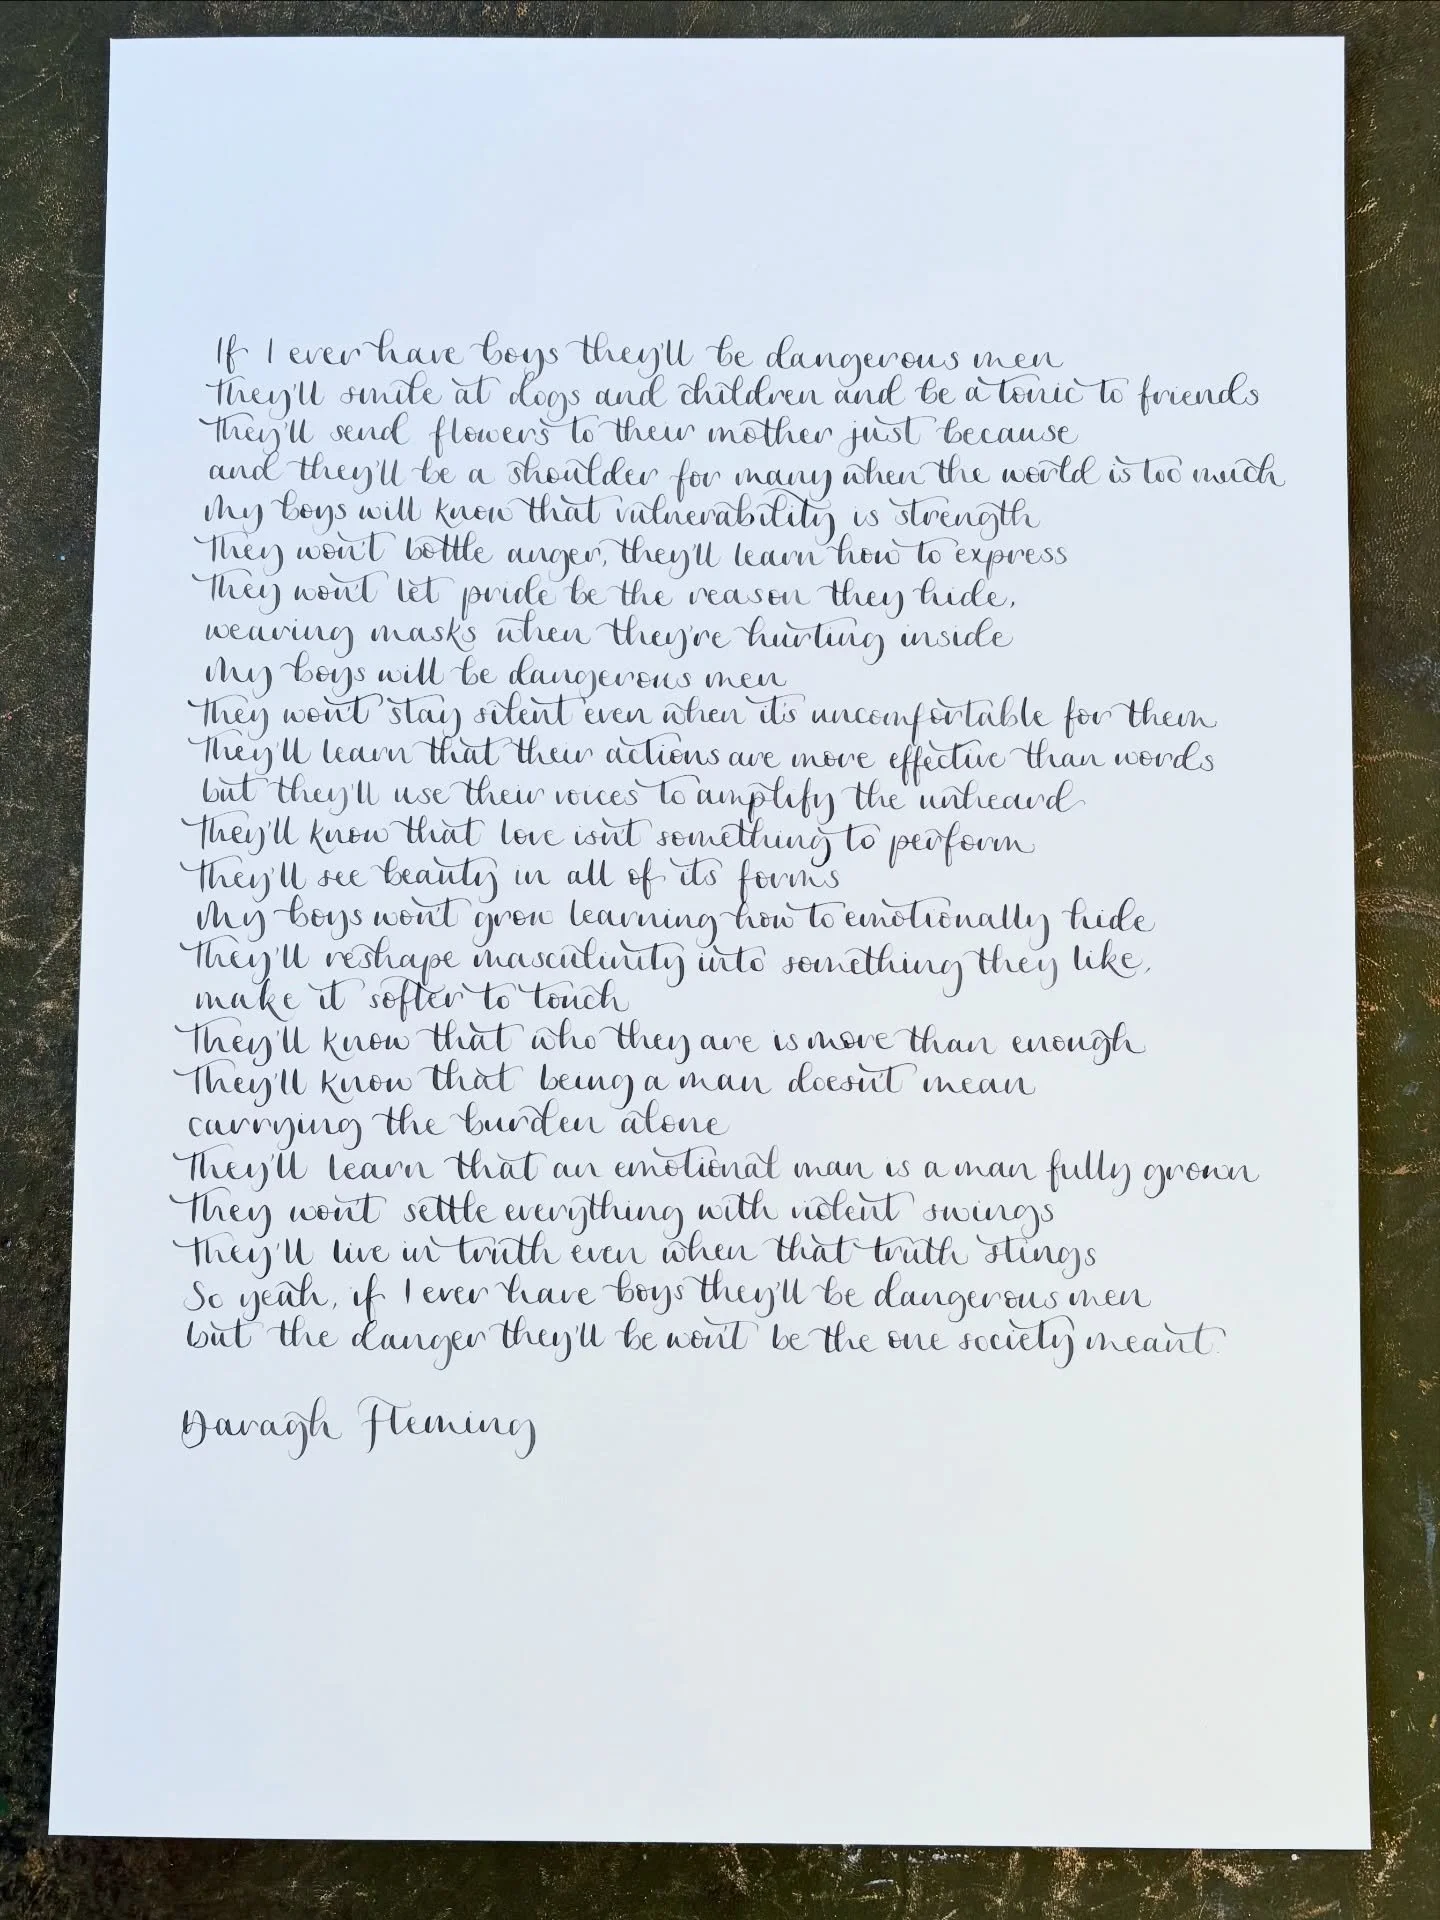 If I ever have boys they'll be dangerous men
They'll smile at dogs and children and be a tonic to friends
They'll send flowers to their mother just because
and they'll be a shoulder for many when the world is too much
My boys will know that vulnerability is strength
They won't bottle anger, they'll learn how to express
They won't let pride be the reason they hide,
wearing masks when they're hurting inside
My boys will be dangerous men
They won't stay silent even when it's uncomfortable for them
They'll learn that their actions are more effective than words
but they'll use their voices to amplify the unheard
They'll know that love isn't something to perform
They'll see beauty in all of its forms
My boys won't grow learning how to emotionally hide
They'll reshape masculinity into something they like,
make it softer to touch
They'll know that who they are is more than enough
They'll know that being a man doesn't mean
carrying the burden alone
They'll learn that an emotional man is a man fully grown
They won't settle everything with violent swings
They'll live in truth even when that truth stings
So yeah, if I ever have boys they'll be dangerous men
but the danger they'll be won't be the one society meant.
Daragh Fleming